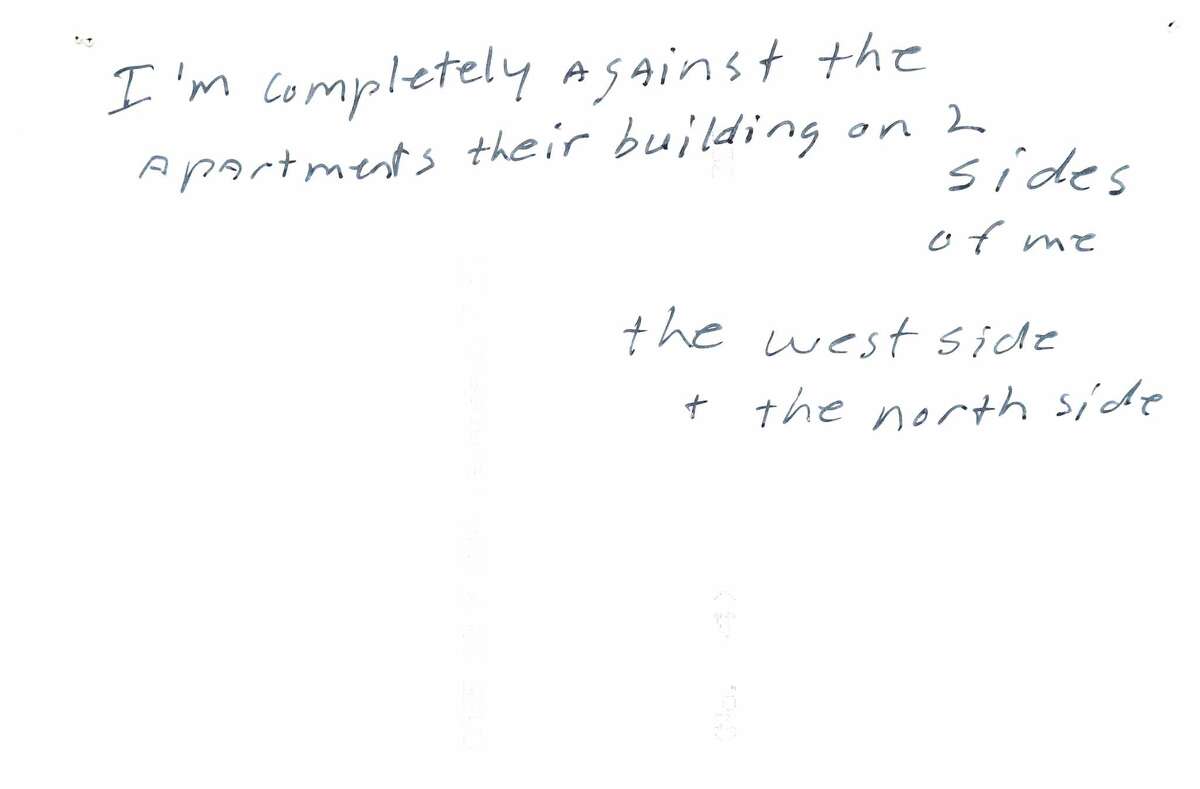 I'm completely against the
apartments their building on 2
sides
of me
the west side
+ the north side